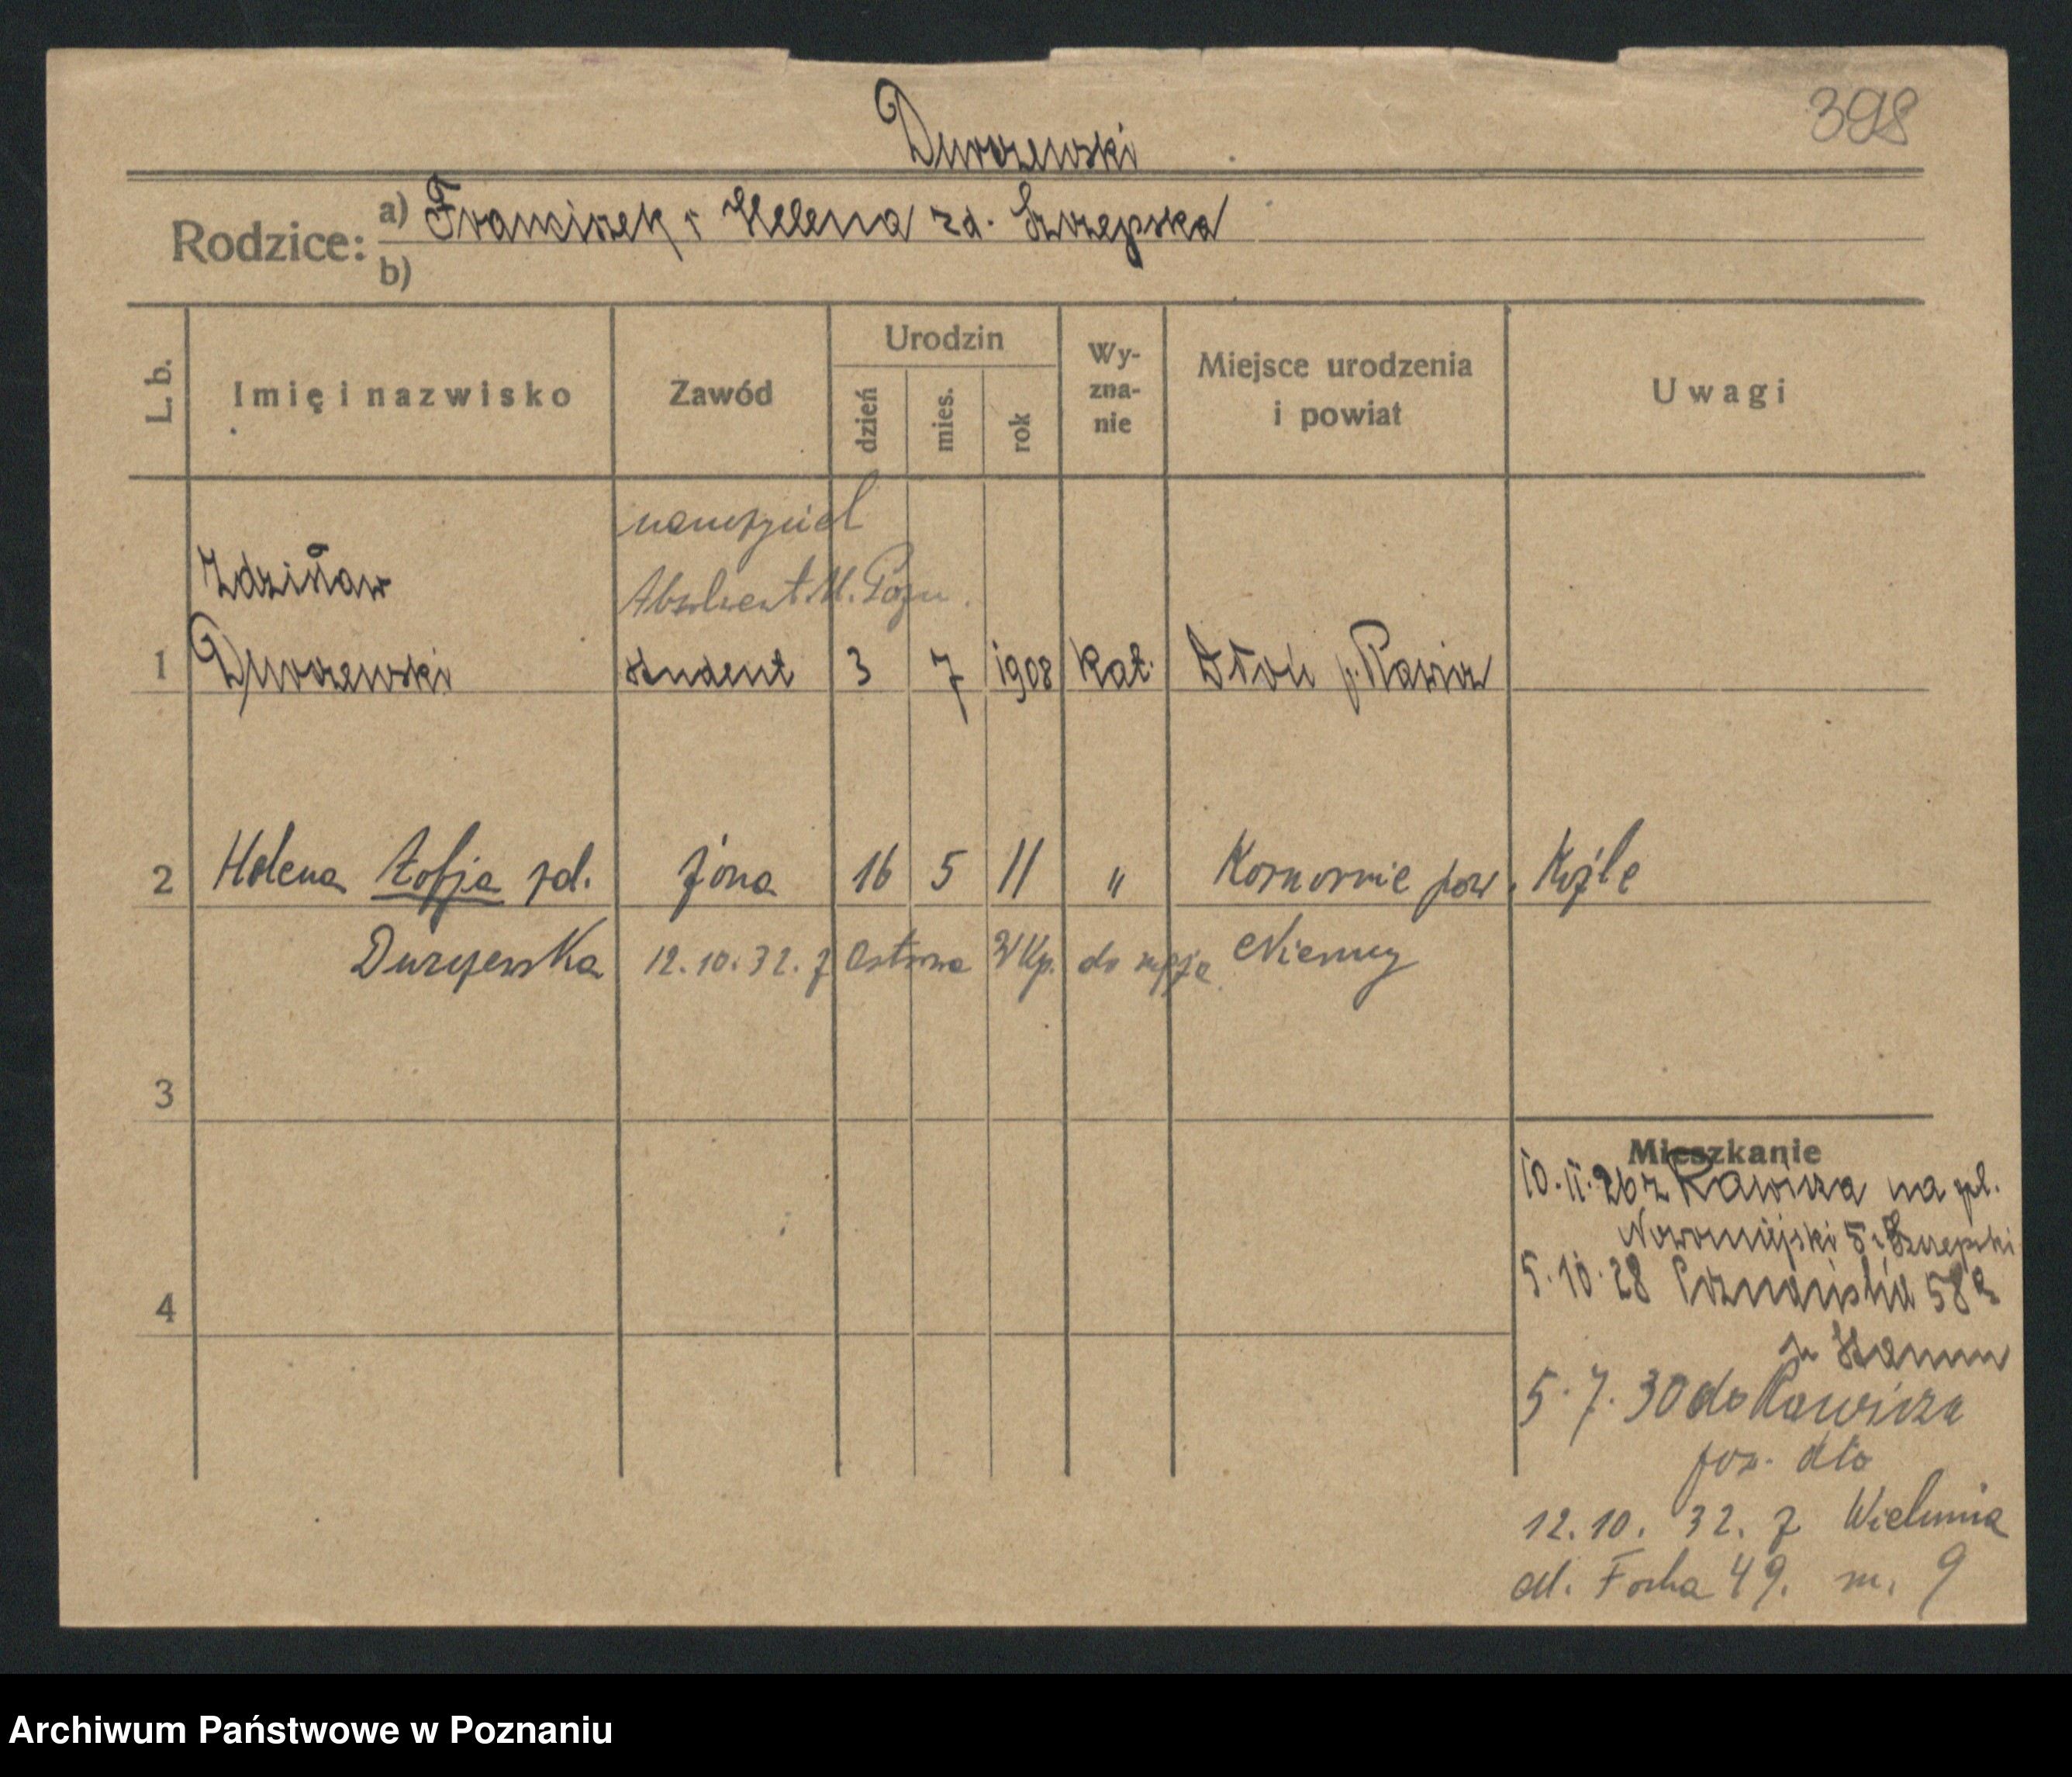 398
Durczewski
Rodzice: a) Franciszek i Helena zd. Szczepska
b)
L. b. Imię i nazwisko Zawód Urodzin dzień mies. rok Wy-zna-nie Miejsce urodzenia i powiat Uwagi
nauczyciel
Zdzisław Absolwent U. Pozn.
1 Durczewski student 3 7 1908 kat. Dłoń p. Rawicz
2 Helena Zofja zd. żona 16 5 11 " pow. Koźle
Durczewska 12.10.32. z Ostrowa WKp. do męża Niemcy
3
Mieszkanie
10.11.26 z Rawicza na pl.
Nowomiejski 5 Szczepski
4
5.10.28 Poznańska 58a
5.7.30 do Rawicza
poz. dto
12.10.32. z Wielunia
ul. Focha 49. m. 9
Archiwum Państwowe w Poznaniu